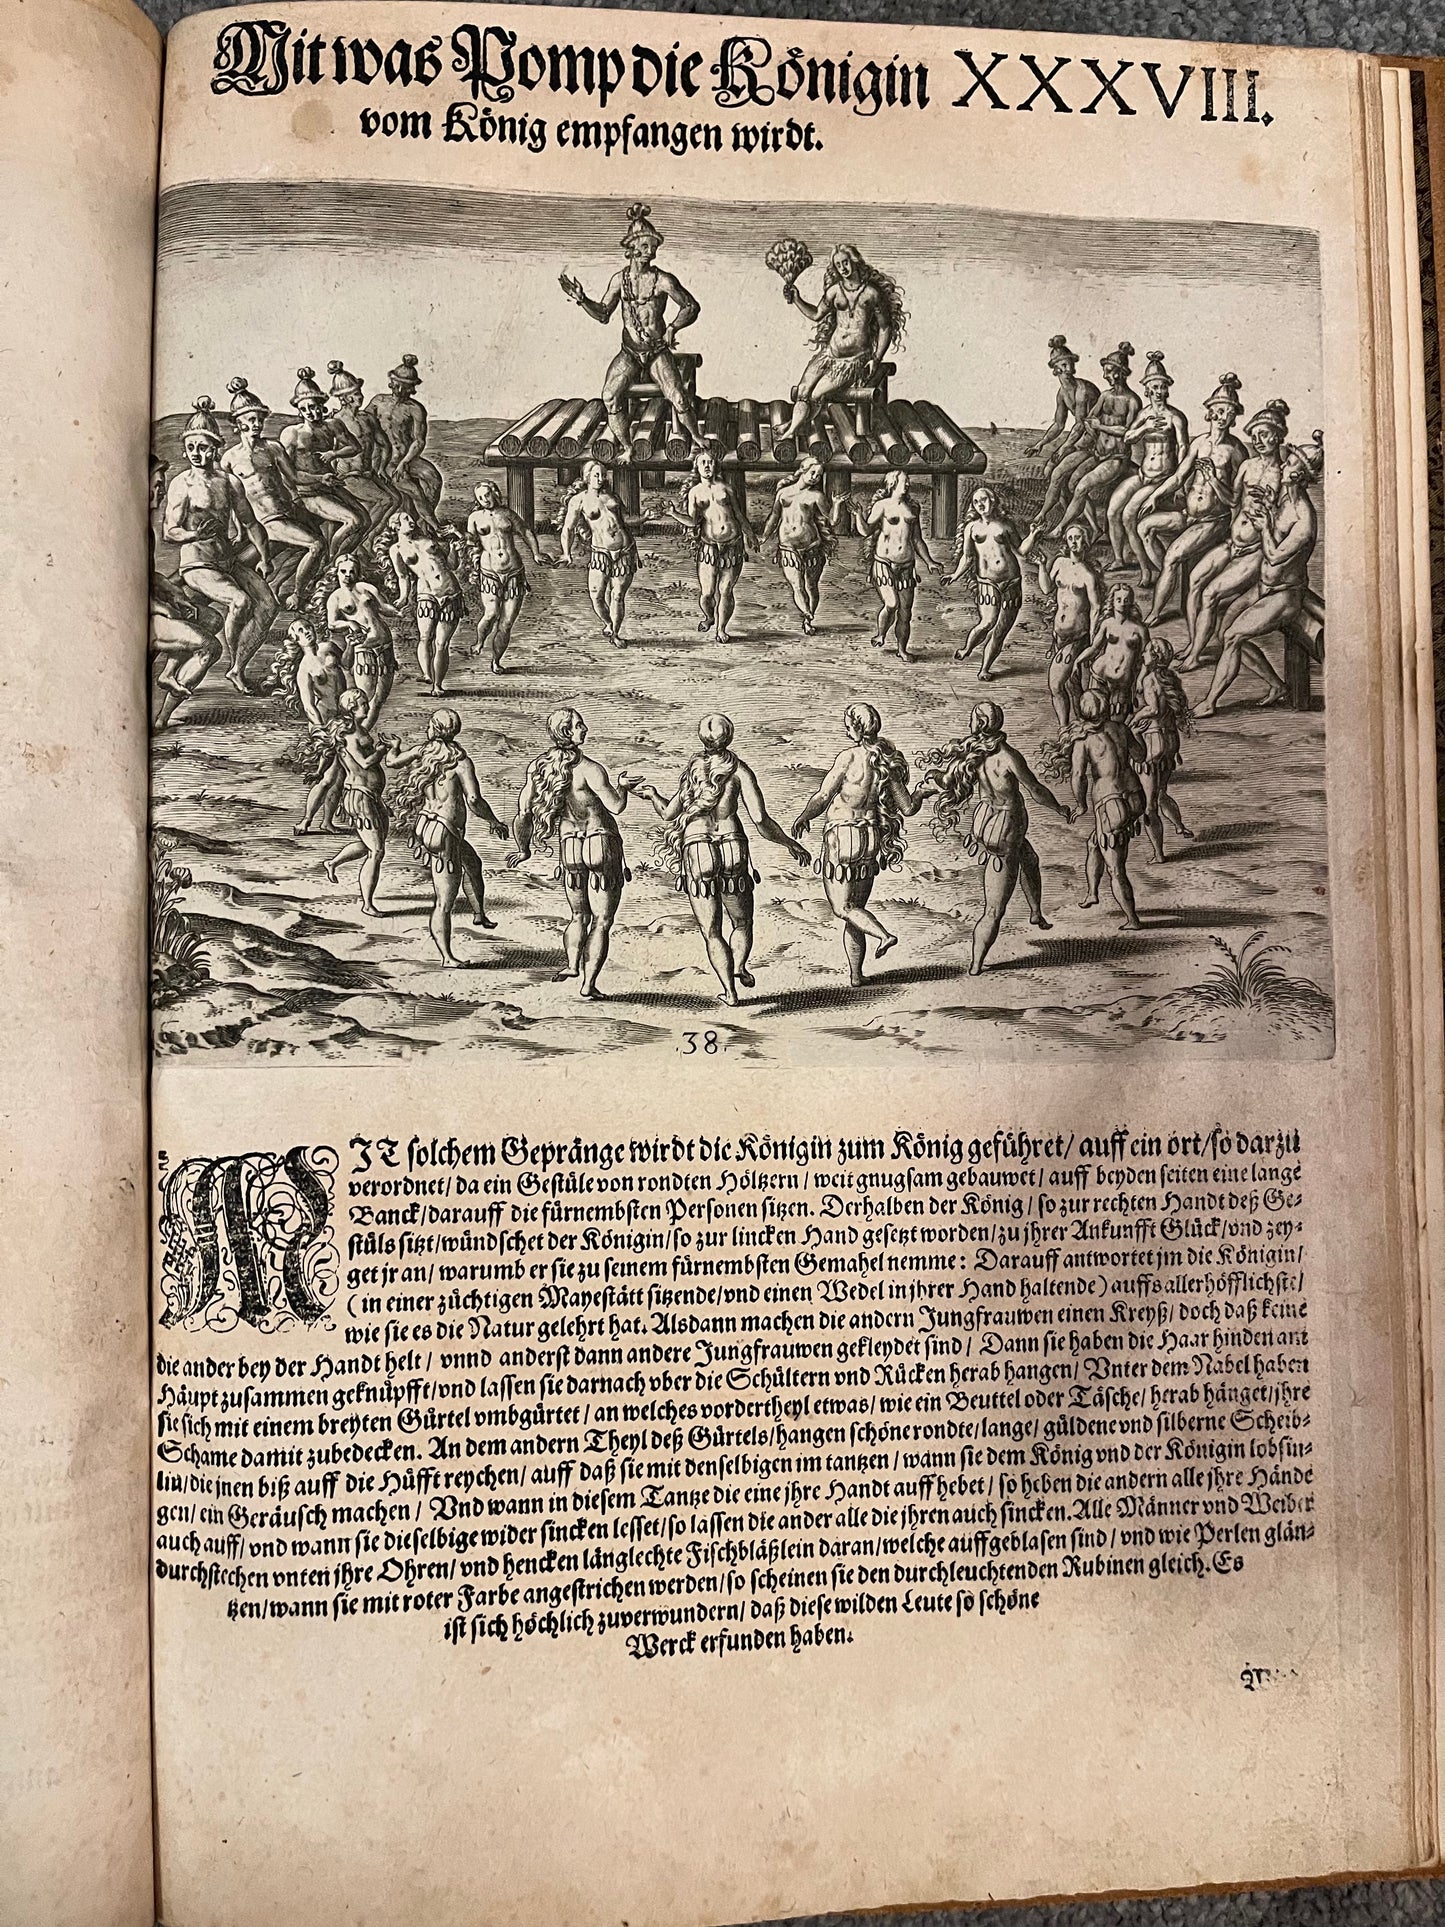 Mit was Pomp die Königin XXXVIII.
vom König empfangen wirdt.
38.
MIT solchem Gepränge wirdt die Königin zum König geführet/ auff ein ort/ so darzu
verordnet/ da ein Gestüle von rondten Höltzern/ weit gnugsam gebauwet/ auff beyden seiten eine lange
Banck/ darauff die fürnembsten Personen sitzen. Derhalben der König/ so zur rechten Handt deß Ge-
stüls sitzt/ wündschet der Königin/ so zur lincken Hand gesetzt worden/ zu jhrer Ankunfft Glück/ vnd zey-
get jr an/ warumb er sie zu seinem fürnembsten Gemahel nemme: Darauff antwortet jm die Königin/
(in einer züchtigen Mayestätt sitzende/ vnd einen Wedel in jhrer Hand haltende) auffs allerhöfflichste/
wie sie es die Natur gelehrt hat. Alsdann machen die andern Jungfrauwen einen Kreyß/ doch daß keine
die ander bey der Handt helt/ vnnd anderst dann andere Jungfrauwen gekleydet sind/ Dann sie haben die Haar hinden am
Häupt zusammen geknüpfft/ vnd lassen sie darnach vber die Schültern vnd Rücken herab hangen/ Vnter dem Nabel haben
sie sich mit einem breyten Gürtel vmbgürtet/ an welches vordertheyl etwas/ wie ein Beuttel oder Täsche/ herab hänget/ jhre
Schame damit zubedecken. An dem andern Theyl deß Gürtels/ hangen schöne rondte/ lange/ güldene vnd silberne Scheib-
lin/ die jnen biß auff die Hüfft reychen/ auff daß sie mit denselbigen im tantzen/ wann sie dem König vnd der Königin lobsin-
gen/ ein Geräusch machen/ Vnd wann in diesem Tantze die eine jhre Handt auff hebet/ so heben die andern alle jhre Hände
auch auff/ vnd wann sie dieselbige wider sincken lesset/ so lassen die ander alle die jhren auch sincken. Alle Männer vnd Weiber
durchstechen vnten jhre Ohren/ vnd hencken länglechte Fischbläßlein daran/ welche auffgeblasen sind/ vnd wie Perlen glän-
tzen/ wann sie mit roter Farbe angestrichen werden/ so scheinen sie den durchleuchtenden Rubinen gleich. Es
ist sich höchlich zuverwundern/ daß diese wilden Leute so schöne
Werck erfunden haben.